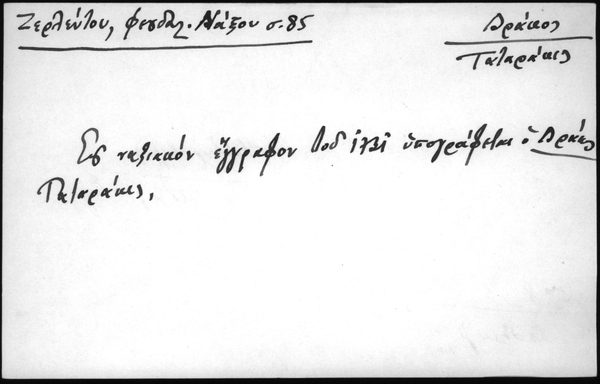 Ζερλέντου, φεουδαλ. Νάξου σ. 85
Δράκος
Παταράκης
Εἰς ναξιακὸν ἔγγραφον τοῦ 1731 ὑπογράφεται ὁ Δράκος
Παταράκης.